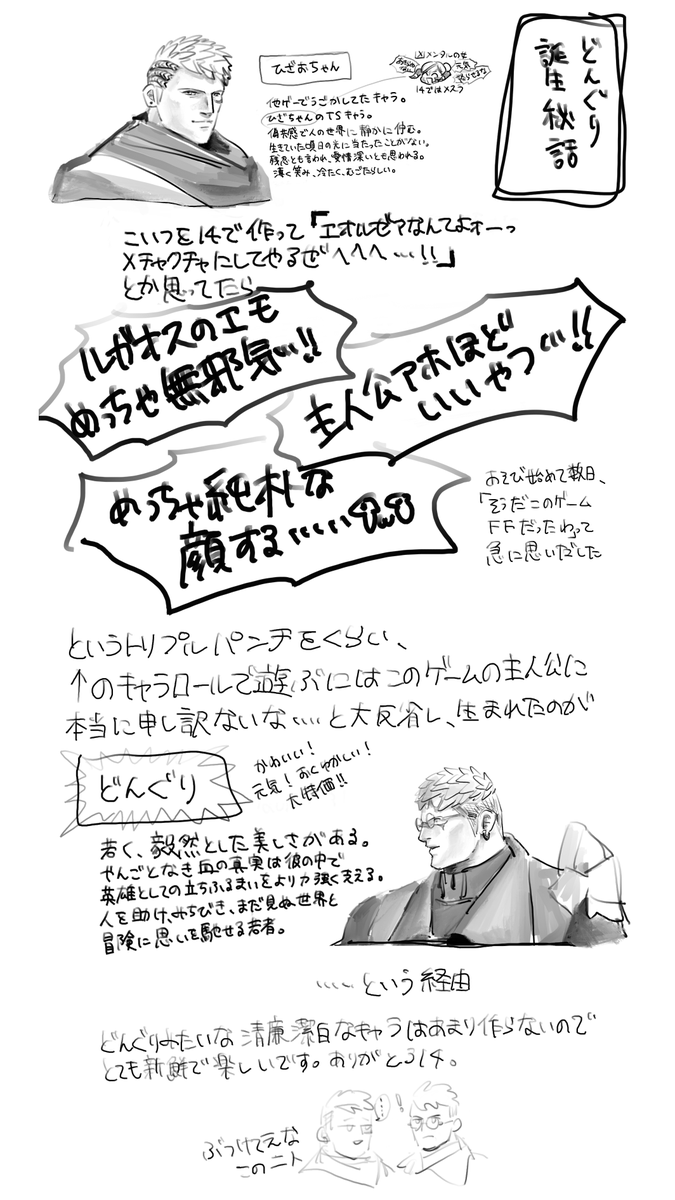 どんぐり
誕生秘話
ひざおちゃん
凶メンタルの女
元気
14ではメスラ
他ゲーでうごかしてたキャラ。
ひざちゃんのTSキャラ。
傭兵感で人の世界に静かに佇む。
生きていた頃日の元に当たったことがない。
残忍とも言われ、愛情深いとも思われる。
薄く笑み、冷たく、むごたらしい。
こいつを14で作って「エオルゼアなんてよォーっ
メチャクチャにしてやるぜへへへ…!!」
とか思ってたら
ルガオスのエモ
めっちゃ無邪気…!!
主人公アホほど
いいやつ…!!
めっちゃ純朴な
顔する……
あそび始めて数日、
「そうだこのゲーム
FFだったわって
急に思いだした
というトリプルパンチをくらい、
↑のキャラロールで遊ぶにはこのゲームの主人公に
本当に申し訳ないな……と大反省し、生まれたのが
どんぐり
かわいい!
元気!おくゆかしい!
大特価!!
若く、毅然とした美しさがある。
やんごとなき血の真実は彼の中で
英雄としての立ちふるまいをより力強く支える。
人を助け、みちびき、まだ見ぬ世界と
冒険に思いを馳せる若者。
……という経由
どんぐりみたいな清廉潔白なキャラはあまり作らないので
とても新鮮で楽しいです。ありがと314。
…
!
ぶつけてえな
このニト